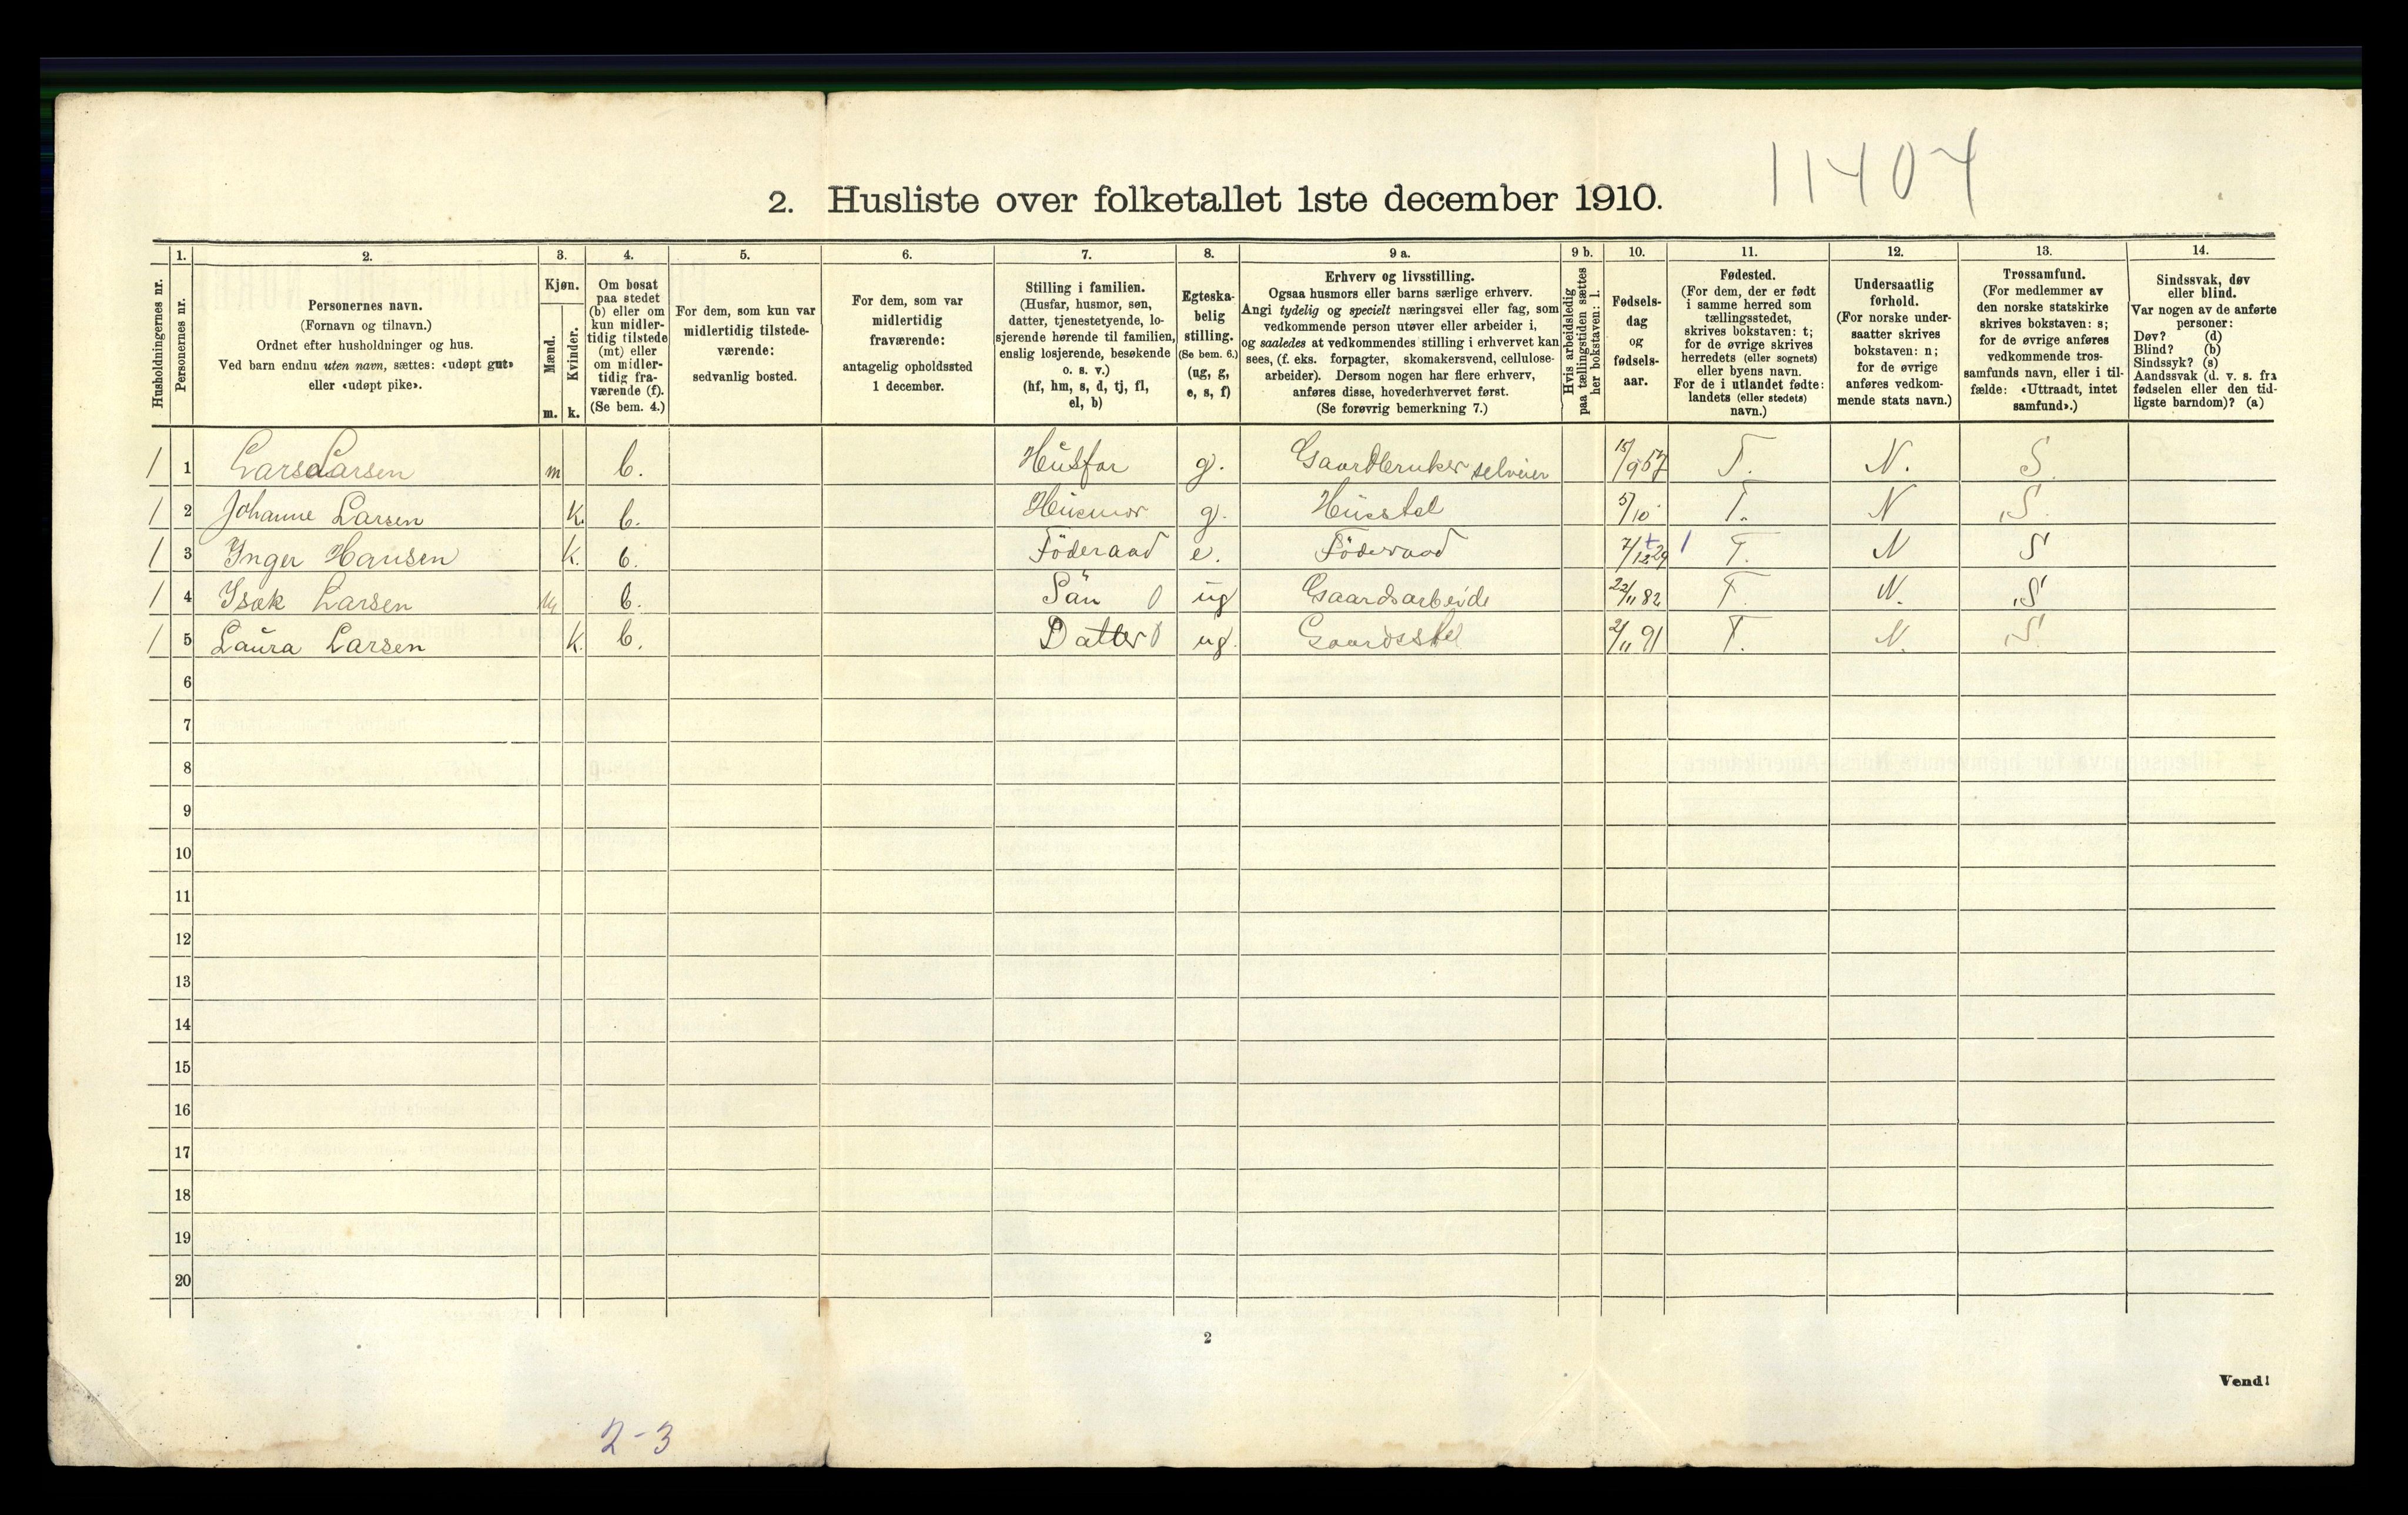 11404
2. Husliste over folketallet 1ste december 1910.
Husholdningernes nr.
1. Personernes nr.
2. Personernes navn.
(Fornavn og tilnavn.)
Ordnet efter husholdninger og hus.
Ved barn endnu uten navn, sættes: «udøpt gut»
eller «udøpt pike».
3. Kjøn.
Mænd. m.
Kvinder. k.
4. Om bosat
paa stedet
(b) eller om
kun midler-
tidig tilstede
(mt) eller
om midler-
tidig fra-
værende (f).
(Se bem. 4.)
5. For dem, som kun var
midlertidig tilstede-
værende:
sedvanlig bosted.
6. For dem, som var
midlertidig
fraværende:
antagelig opholdssted
1 december.
7. Stilling i familien.
(Husfar, husmor, søn,
datter, tjenestetyende, lo-
sjerende hørende til familien,
enslig losjerende, besøkende
o. s. v.)
(hf, hm, s, d, tj, fl,
el, b)
8. Egteska-
belig
stilling.
(Se bem. 6.)
(ug, g,
e, s, f)
9 a. Erhverv og livsstilling.
Ogsaa husmors eller barns særlige erhverv.
Angi tydelig og specielt næringsvei eller fag, som
vedkommende person utøver eller arbeider i,
og saaledes at vedkommendes stilling i erhvervet kan
sees, (f. eks. forpagter, skomakersvend, cellulose-
arbeider). Dersom nogen har flere erhverv,
anføres disse, hovederhvervet først.
(Se forøvrig bemerkning 7.)
9 b. Hvis arbeidsledig
paa tællingstiden sættes
her bokstaven: l.
10. Fødsels-
dag
og
fødsels-
aar.
11. Fødested.
(For dem, der er født
i samme herred som
tællingsstedet,
skrives bokstaven: t;
for de øvrige skrives
herredets (eller sognets)
eller byens navn.
For de i utlandet fødte:
landets (eller stedets)
navn.)
12. Undersaatlig
forhold.
(For norske under-
saatter skrives
bokstaven: n;
for de øvrige
anføres vedkom-
mende stats navn.)
13. Trossamfund.
(For medlemmer av
den norske statskirke
skrives bokstaven: s;
for de øvrige anføres
vedkommende tros-
samfunds navn, eller i til-
fælde: «Uttraadt, intet
samfund».)
14. Sindssvak, døv
eller blind.
Var nogen av de anførte
personer:
Døv? (d)
Blind? (b)
Sindssyk? (s)
Aandssvak (d. v. s. fra
fødselen eller den tid-
ligste barndom)? (a)
1 1 Lars Larsen m b. Husfar g. Gaardbruker selveier 15/9 57 T. N. S
1 2 Johanne Larsen K. b. Husmor g. Husstel 5/10 T. N S.
1 3 Inger Hansen K. b. Föderaad e. Föderaad 7/12 29 T. N S
1 4 Isak Larsen M b. Sön ug Gaardsarbeide 22/11 82 T. N. S
1 5 Laura Larsen K. b. Datter ug. Gaardsstel 2/11 91 T. N. S
6
7
8
9
10
11
12
13
14
15
16
17
18
19
20
2
Vend!
2-3